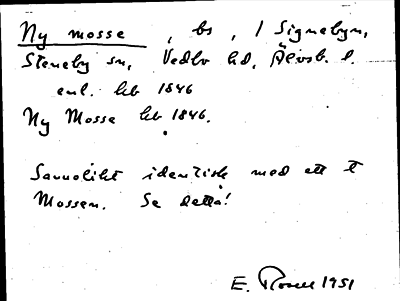 Ny mosse, bs, / Signebyn,
Steneby sn, Vedbo hd, Älvsb. l.
enl. hb 1846
Ny Mosse hb 1846.
Sannolikt identisk med ett t
Mossen. Se detta!
E. 1951